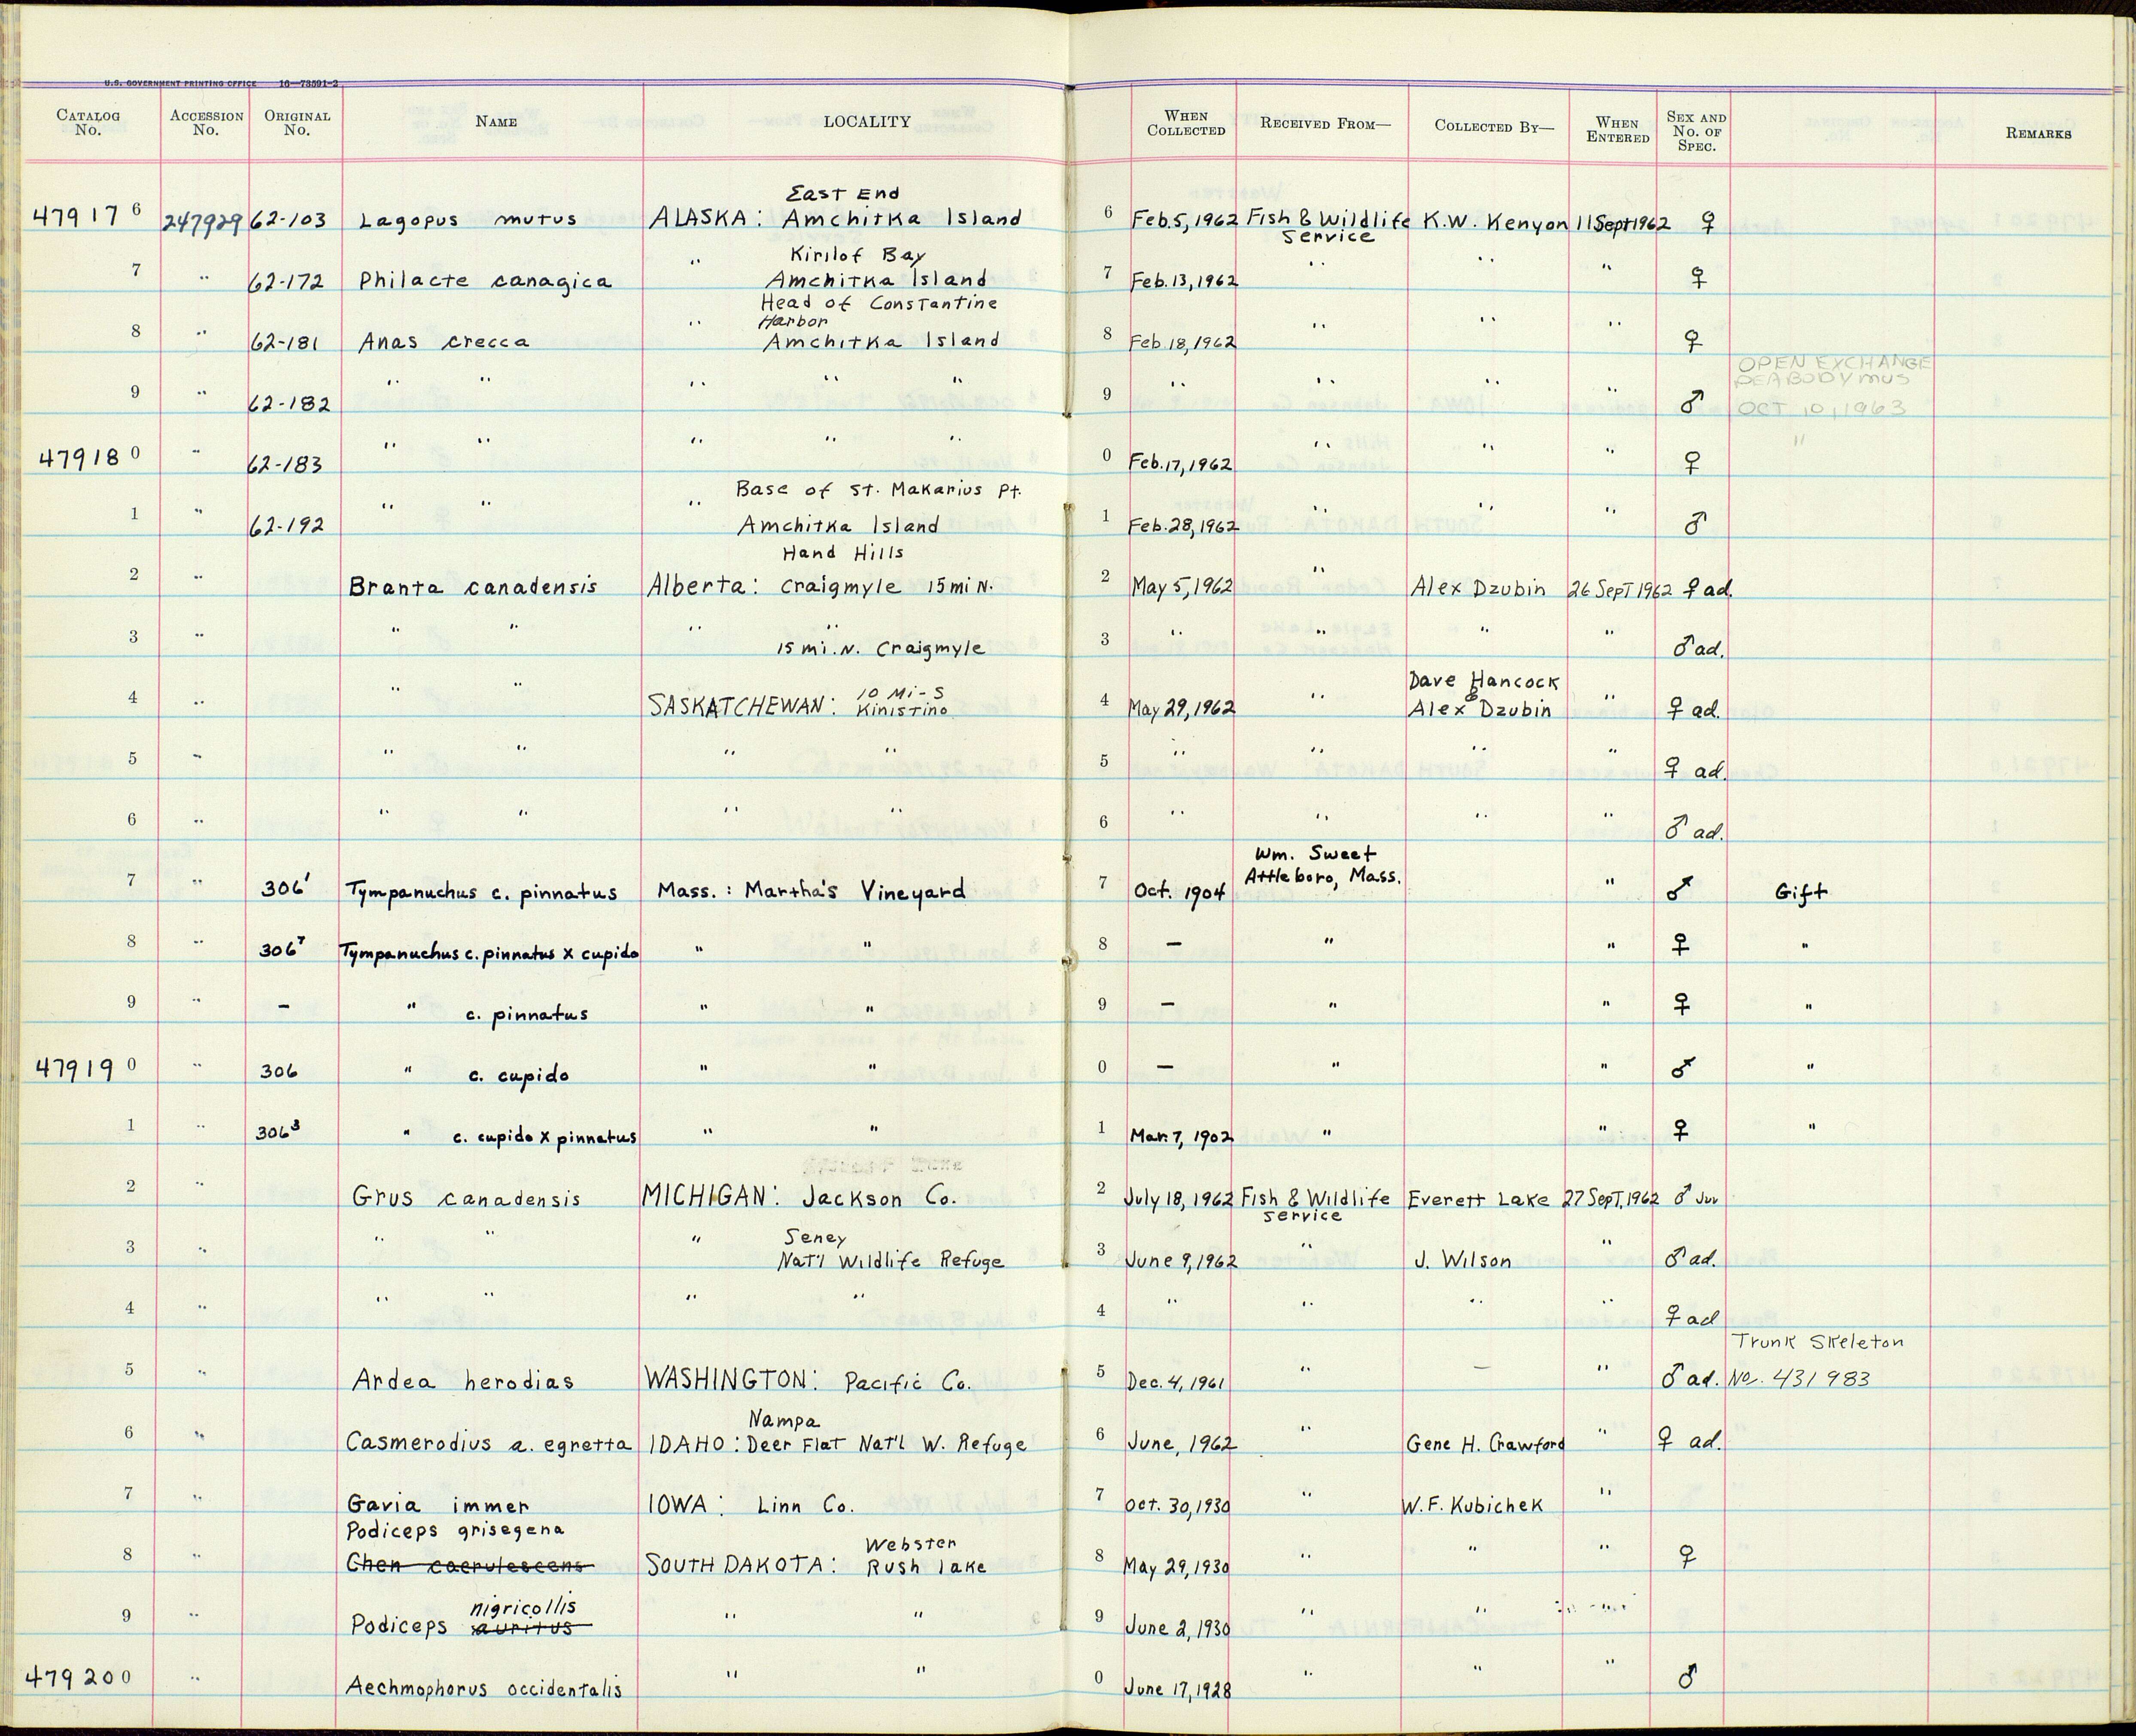 U.S. GOVERNMENT PRINTING OFFICE 16—73591-2
CATALOG No. ACCESSION No. ORIGINAL No. NAME LOCALITY WHEN COLLECTED RECEIVED FROM— COLLECTED BY— WHEN ENTERED SEX AND No. OF SPEC. REMARKS
East End
47917 6 247929 62-103 Lagopus mutus ALASKA: Amchitka Island 6 Feb. 5, 1962 Fish & Wildlife Service K.W. Kenyon 11 Sept 1962 ♀
Kirilof Bay
7 " 62-172 Philacte canagica " Amchitka Island 7 Feb. 13, 1962 " " " ♀
Head of Constantine
Harbor
8 " 62-181 Anas crecca " Amchitka Island 8 Feb 18, 1962 " " " ♀
OPEN EXCHANGE
PEABODY MUS
9 " 62-182 " " " " " 9 " " " " ♂ OCT 10, 1963
47918 0 " 62-183 " " " " " 0 Feb. 17, 1962 " " " ♀ "
Base of St. Makarius Pt.
1 " 62-192 " " " Amchitka Island 1 Feb. 28, 1962 " " " ♂
Hand Hills
2 " Branta canadensis Alberta: Craigmyle 15 mi N. 2 May 5, 1962 " Alex Dzubin 26 Sept 1962 ♀ ad.
3 " " " " " 15 mi. N. Craigmyle 3 " " " " ♂ ad.
4 " " " SASKATCHEWAN: 10 Mi-S Kinistino 4 May 29, 1962 " Dave Hancock & Alex Dzubin " ♀ ad.
5 " " " " " 5 " " " " ♀ ad.
6 " " " " " 6 " " " " ♂ ad.
7 " 306¹ Tympanuchus c. pinnatus Mass.: Martha's Vineyard 7 Oct. 1904 Wm. Sweet Attleboro, Mass. " ♂ Gift
8 " 306⁷ Tympanuchus c. pinnatus x cupido " " 8 — " " ♀ "
9 " — " c. pinnatus " " 9 — " " ♀ "
47919 0 " 306 " c. cupido " " 0 — " " ♂ "
1 " 306³ " c. cupido x pinnatus " " 1 Mar. 7, 1902 " " ♀ "
2 " Grus canadensis MICHIGAN: Jackson Co. 2 July 18, 1962 Fish & Wildlife Service Everett Lake 27 Sept, 1962 ♂ Juv
3 " " " " Seney Nat'l Wildlife Refuge 3 June 9, 1962 " J. Wilson " ♂ ad.
4 " " " " " 4 " " " " ♀ ad
Trunk Skeleton
5 " Ardea herodias WASHINGTON: Pacific Co. 5 Dec. 4, 1961 " — " ♂ ad. No. 431983
Nampa
6 " Casmerodius a. egretta IDAHO: Deer Flat Nat'l W. Refuge 6 June, 1962 " Gene H. Crawford " ♀ ad.
7 " Gavia immer IOWA: Linn Co. 7 Oct. 30, 1930 " W.F. Kubichek "
Podiceps grisegena
8 " Chen caerulescens SOUTH DAKOTA: Webster Rush lake 8 May 29, 1930 " " " ♀
nigricollis
9 " Podiceps auritus " " 9 June 2, 1930 " " "
47920 0 " Aechmophorus occidentalis " " 0 June 17, 1928 " " " ♂